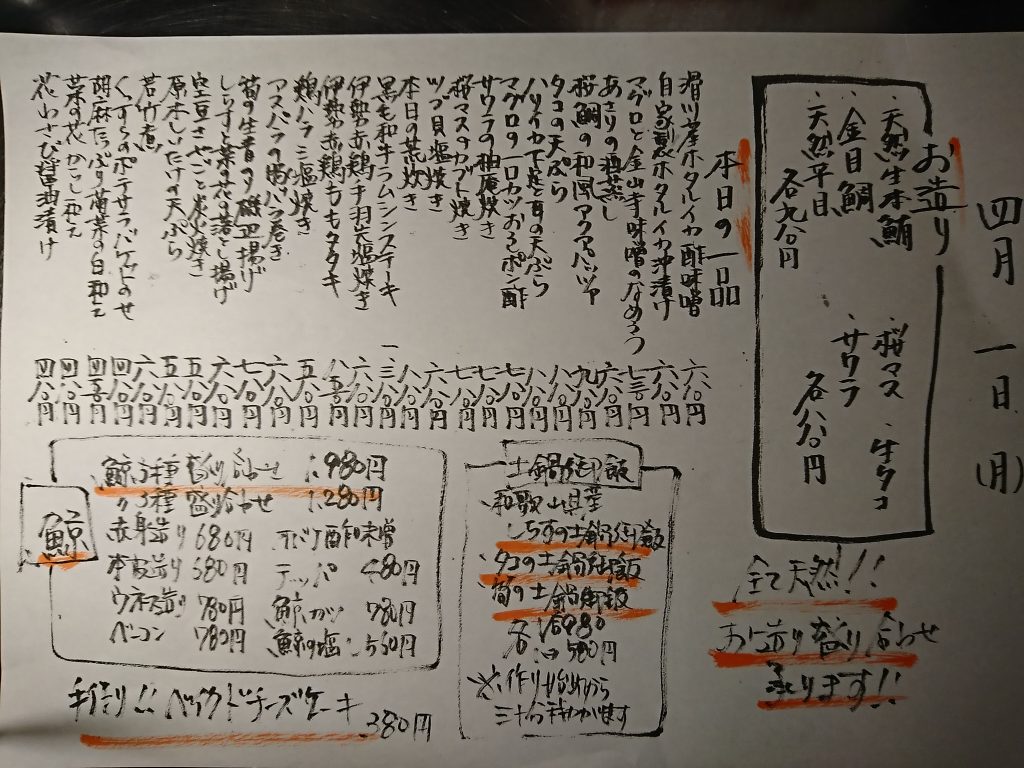 四月一日(月)
お造り
・天然生本鮪
・金目鯛
・天然平目
各九八〇円
・桜マス
・生タコ
・サワラ
各八八〇円
全て天然!!
お造り盛り合わせ
承ります!!
本日の一品
滑川産ホタルイカ酢味噌 六八〇円
自家製ホタルイカ沖漬け 六八〇円
マグロと金山寺味噌のなめろう 七三〇円
あさりの酒蒸し 六八〇円
桜鯛の和風アクアパッツァ 九八〇円
タコの天ぷら 八八〇円
ハリイカ下足の天ぷら 八八〇円
マグロの一口カツおろしポン酢 七八〇円
サワラの柚庵焼き 七八〇円
桜マスのカブト焼き 七八〇円
ツブ貝塩焼き 六八〇円
本日の荒炊き 八八〇円
黒毛和牛ラムシンステーキ 一、三八〇円
伊勢赤鶏手羽先塩焼き 六八〇円
伊勢赤鶏ももタタキ 八五〇円
鶏ハラミ塩焼き 五八〇円
アスパラの豚バラ巻き 六八〇円
筍の生青のり磯辺揚げ 七八〇円
しらすと菜の花落とし揚げ 六八〇円
空豆さやごと炭火焼き 五八〇円
原木しいたけの天ぷら 五八〇円
若竹煮 六八〇円
くずし豆のポテサラバゲットのせ 四八〇円
胡麻たっぷり菊菜の白和え 四五〇円
菜の花からし和え 四八〇円
花わさび醤油漬け 四八〇円
土鍋御飯
和歌山県産
しらすの土鍋御飯
タコの土鍋御飯
筍の土鍋御飯
各 1合980
1/2 580円
※作り始めから
三十分程かかります
鯨
鯨5種盛り合わせ 1,980円
〃3種盛り合わせ 1,280円
赤身造り 680円
本皮造り 580円
ウネス造り 780円
ベーコン 780円
オバケ酢味噌
テッパ 480円
鯨カツ 780円
鯨の塩 550円
手作り!!ベイクドチーズケーキ 380円